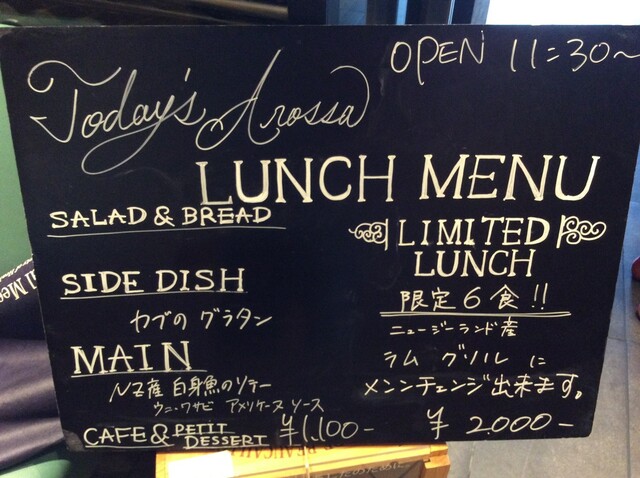 OPEN 11:30~
Today's Arossa
LUNCH MENU
SALAD & BREAD
SIDE DISH
カブのグラタン
MAIN
NZ産 白身魚のソテー
ウニ・ワサビ アメリケーヌ ソース
CAFE & PETIT DESSERT ¥1,100-
LIMITED
LUNCH
限定6食!!
ニュージーランド産
ラム グリル に
メンンチェンジ出来ます。
¥ 2000-